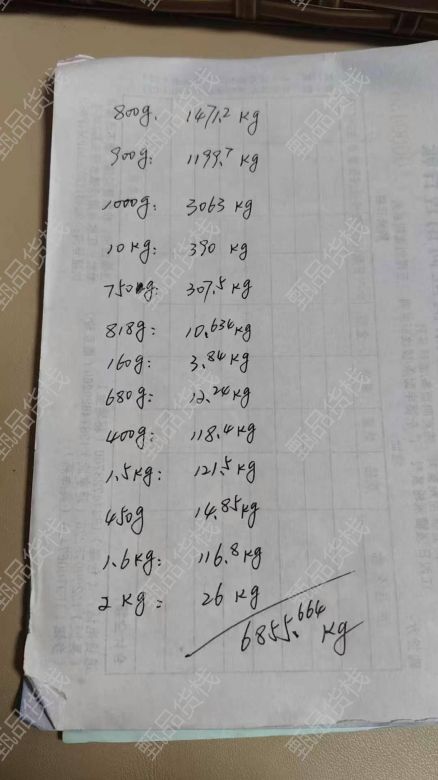 800g. 1471.2 kg
900g: 1199.7 kg
1000g: 3063 kg
10kg: 390 kg
750g: 307.5 kg
818g: 10.634kg
160g: 3.84kg
680g: 12.24kg
400g: 118.4kg
1.5kg: 121.5kg
450g 14.85kg
1.6kg: 116.8kg
2kg: 26kg
6855.664 kg
甄品货栈